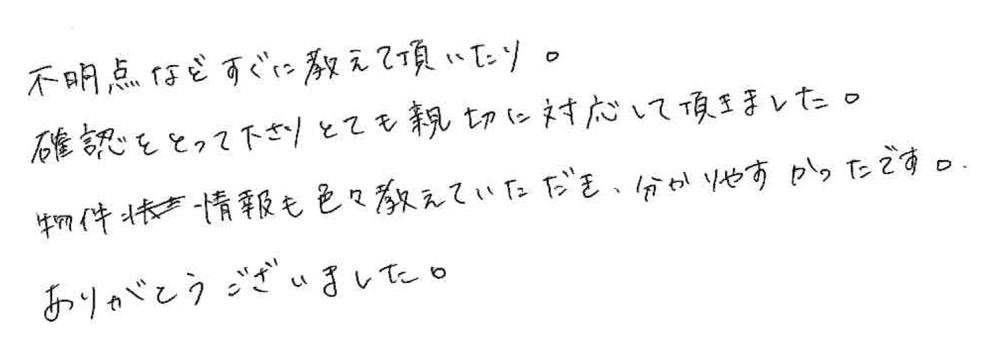 不明点などすぐに教えて頂いたり。
確認をとって下さりとても親切に対応して頂きました。
物件情報も色々教えていただき、分かりやすかったです。
ありがとうございました。